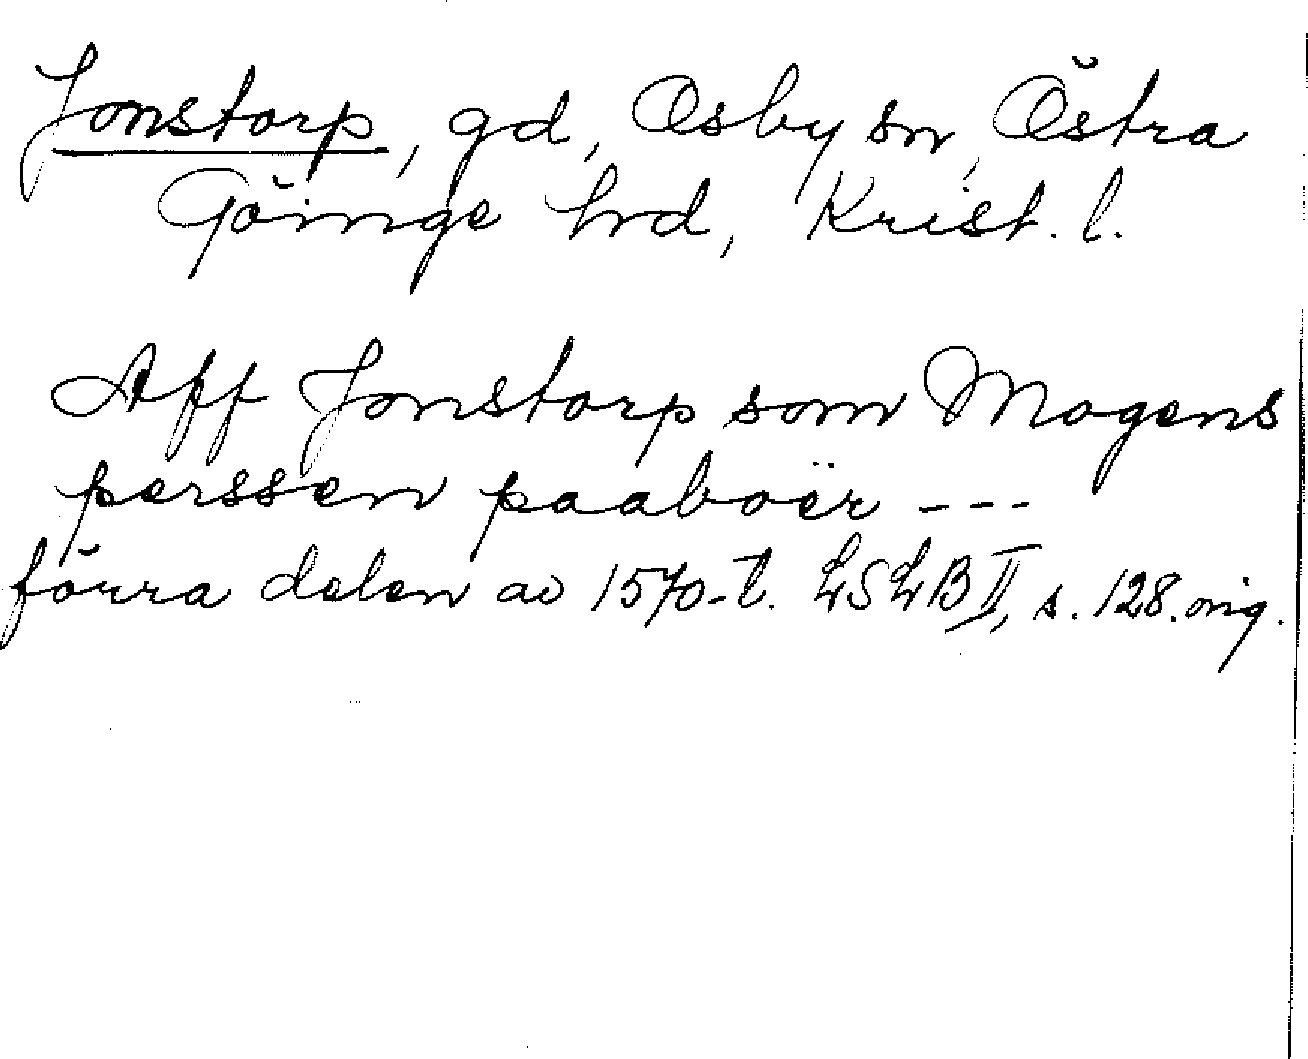 Jonstorp, gd, Osby sn, Östra
Göinge hrd, Krist. l.
Aff Jonstorp som Mogens
perssen paaboër ---
förra delen av 1570-t. LSLB II, s. 128. orig.